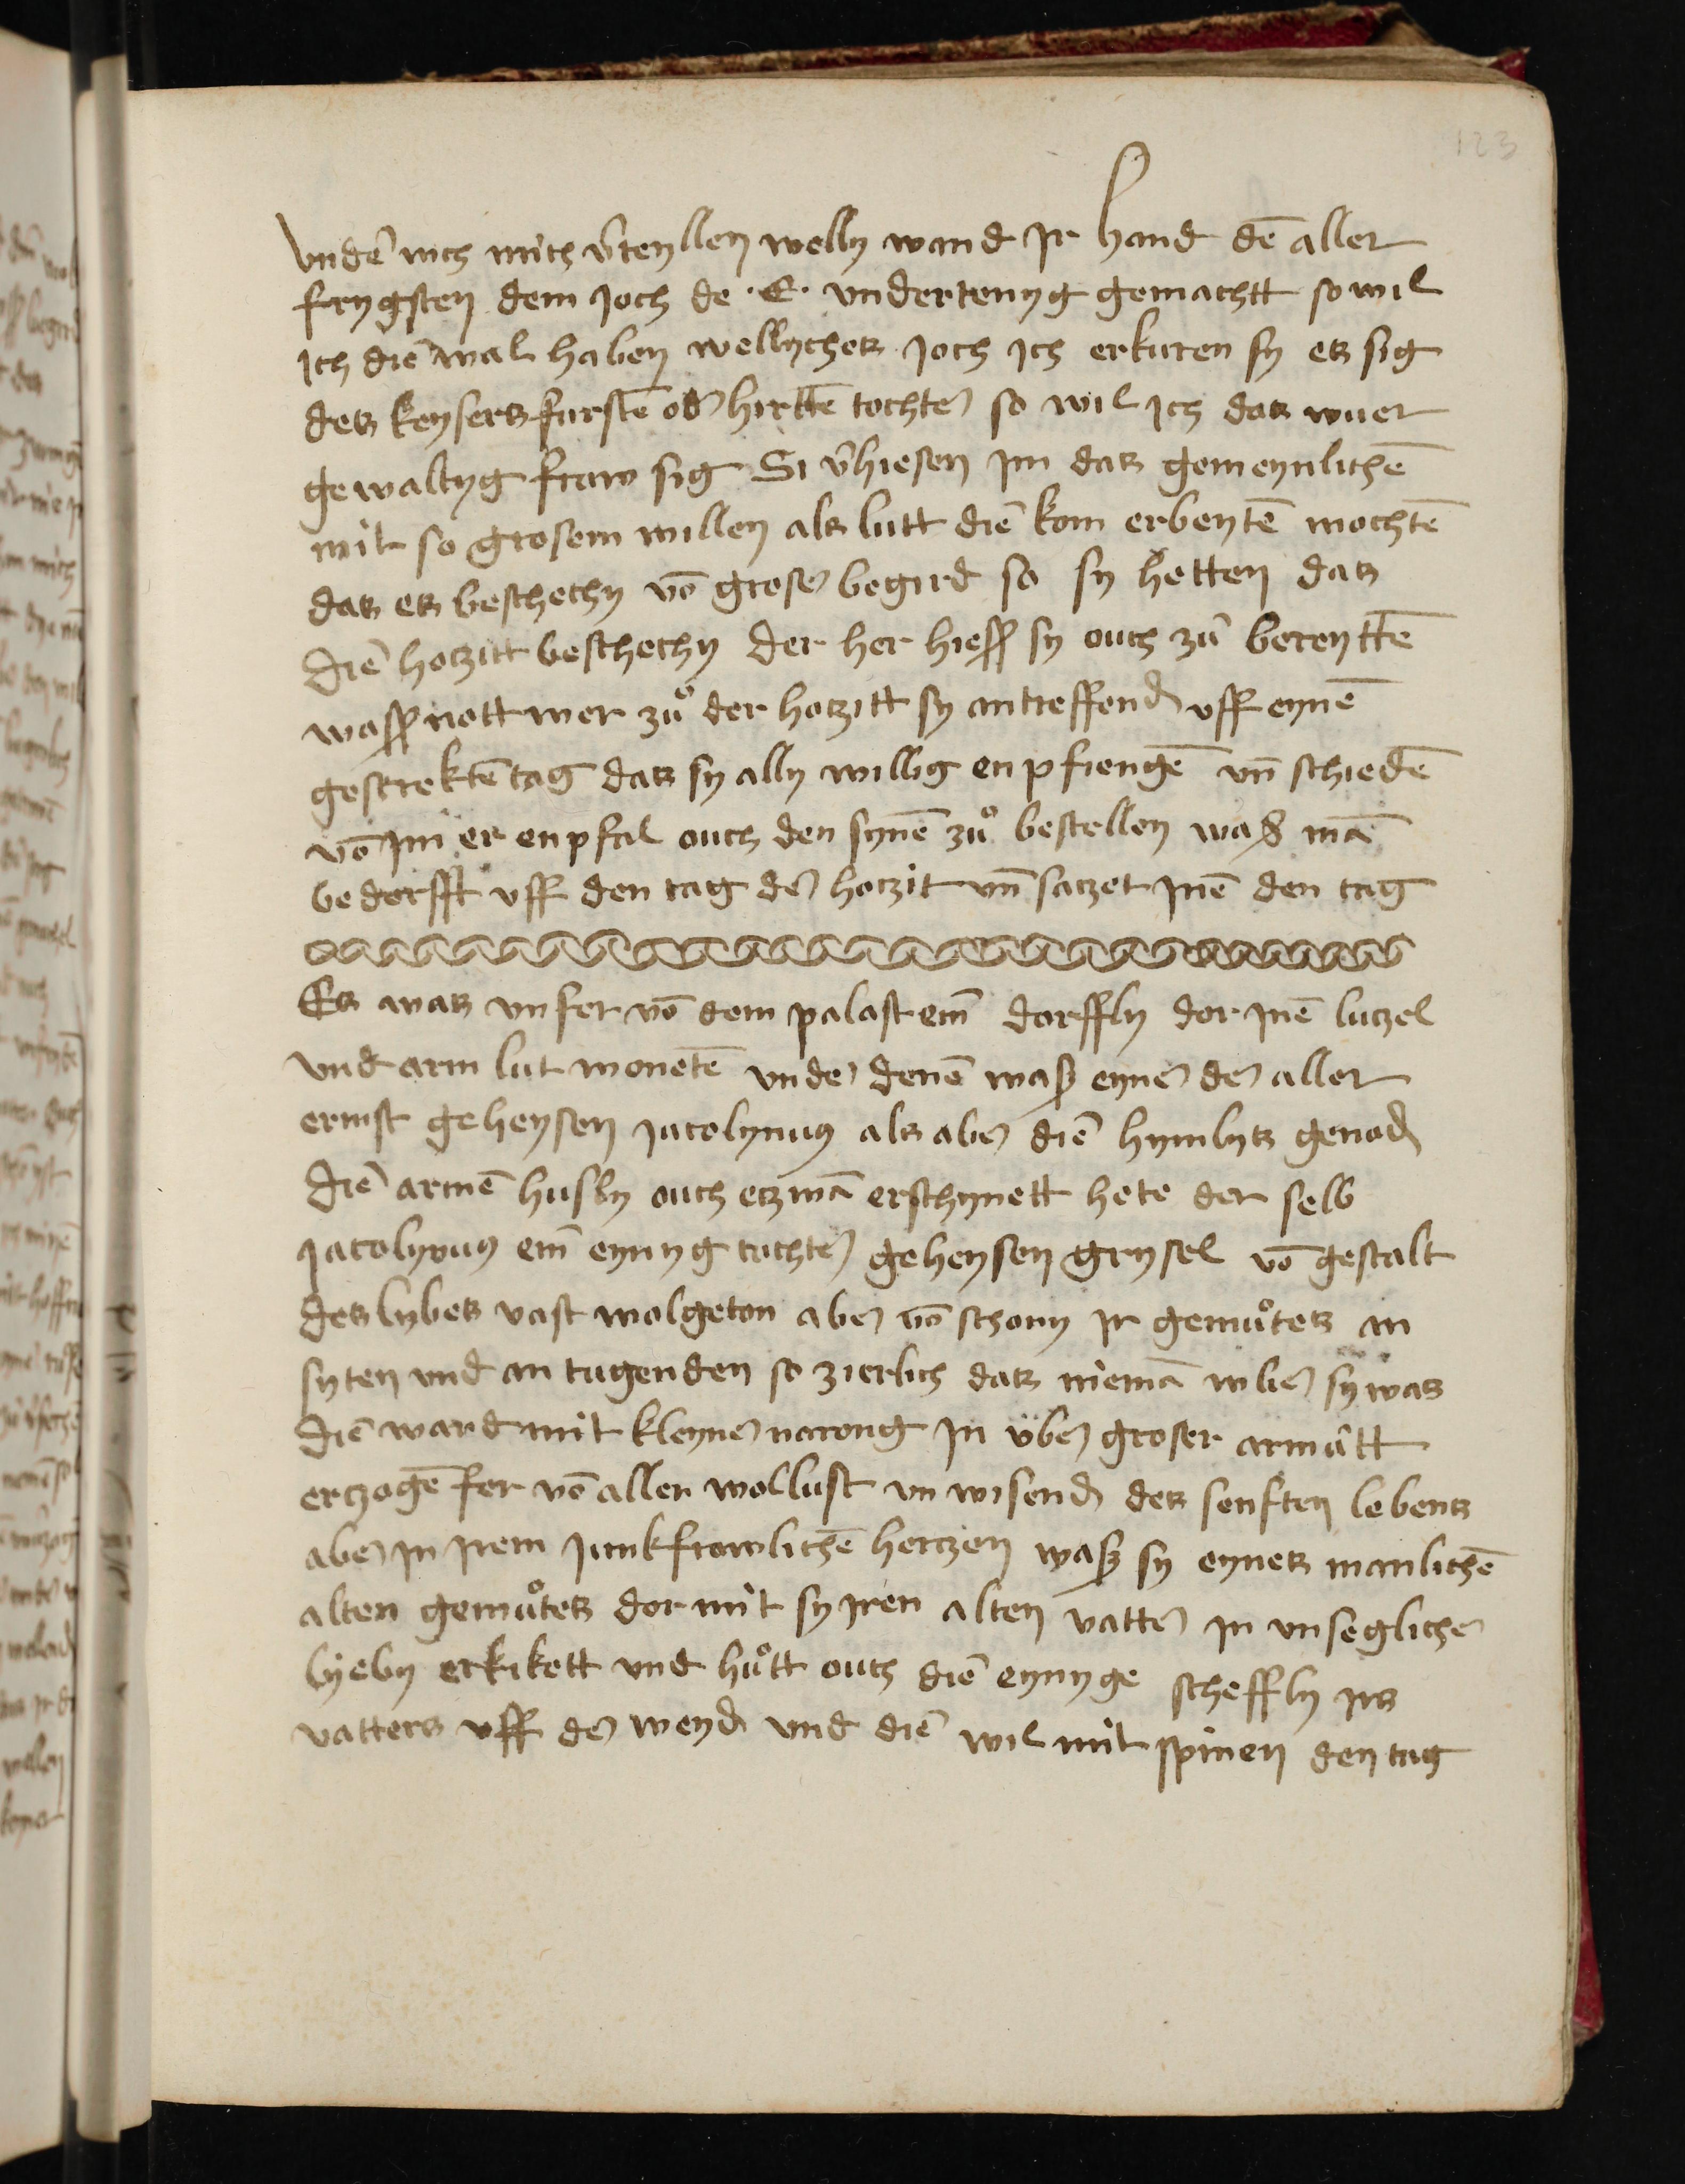 123
vndē uch mich v̄teyllen welly wand ir hand dē aller
frygsten dem joch de ·E· vndertenyg gemachtt so wil
ich diē wal haben wellyches joch ich erkuren sy es sig
des keysers furstē od hirttē tochter so wil ich das uwer
gewaltyg fraw sig Si v̄hiesen im das gemeynlichē
mit so grosem willen als lutt diē kom erbeytē mochtē
das es beschechy vō groser begird so sy hetten das
diē hotzitt beschechy der her hiess sy ouch zů bereyttē
wass nott wer zuͦ der hotzitt sy antreffend vff eynē
gestrektē tag das sy ally willig enpfiengē vn̄ schiedē
vō im er enpfal ouch den synē zuͦ bestellen waß mā
bedorfft vff den tag der hotzit vn̄ satzet inē den tag
Es was vnfer vō dem palast ein̄ dorffly dor inē lutzel
vnd arm lut wonetē vnder denē waß eyner der aller
ermst geheysen jacolynus als aber diē hymlys genad
diē armē husly ouch etzwā erschynett hete der selb
jacolynus ein̄ eynyg tochter geheysen grysel vō gestalt
des lybes vast wolgeton aber vō schony ir gemuͦtes an
syten vnd an tugenden so zierlich das niemā vber sy was
diē ward mit kleyner narong in vber groser armůtt
erzogē fer vō aller wollust vn wisend des senften lebens
aber in irem junkfrowlichē hertzen waß sy eynes manlichē
alten gemuͦtes dor mit sy iren alten vatter in vnseglicher
lyeby erkikett vnd huͦtt ouch diē eynyge scheffly irs
vatters vff der weyd vnd diē wil mit spinen den tag